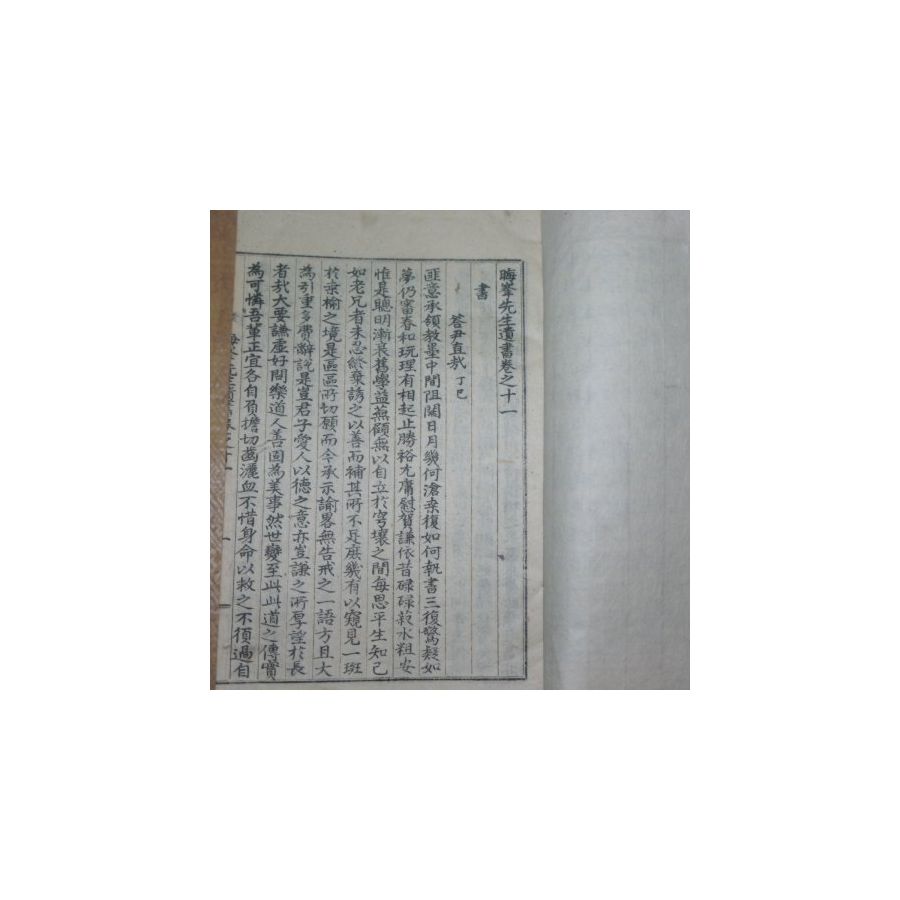 晦峯先生遺書卷之十一
書
答尹直哉 丁巳
匪意承領教墨中間阻闊日月幾何滄桑復如何執書三復驚疑如
夢仍審春和玩理有相起止勝裕尤庸慰賀謙依昔碌碌菽水粗安
惟是聰明漸衰舊學益蕪顧無以自立於穹壤之間每思平生知己
如老兄者未忍終棄諉之以善而補其所不足庶幾有以窺見一斑
於桑榆之境是區區所切願而今承示諭畧無告戒之一語方且大
為引重多費辭說是豈君子愛人以德之意亦豈謙之所厚望於長
者哉大要謙虛好問樂道人善固為美事然世變至此此道之傳實
為可憐吾輩正宜各自負擔切齒灑血不惜身命以救之不須過自